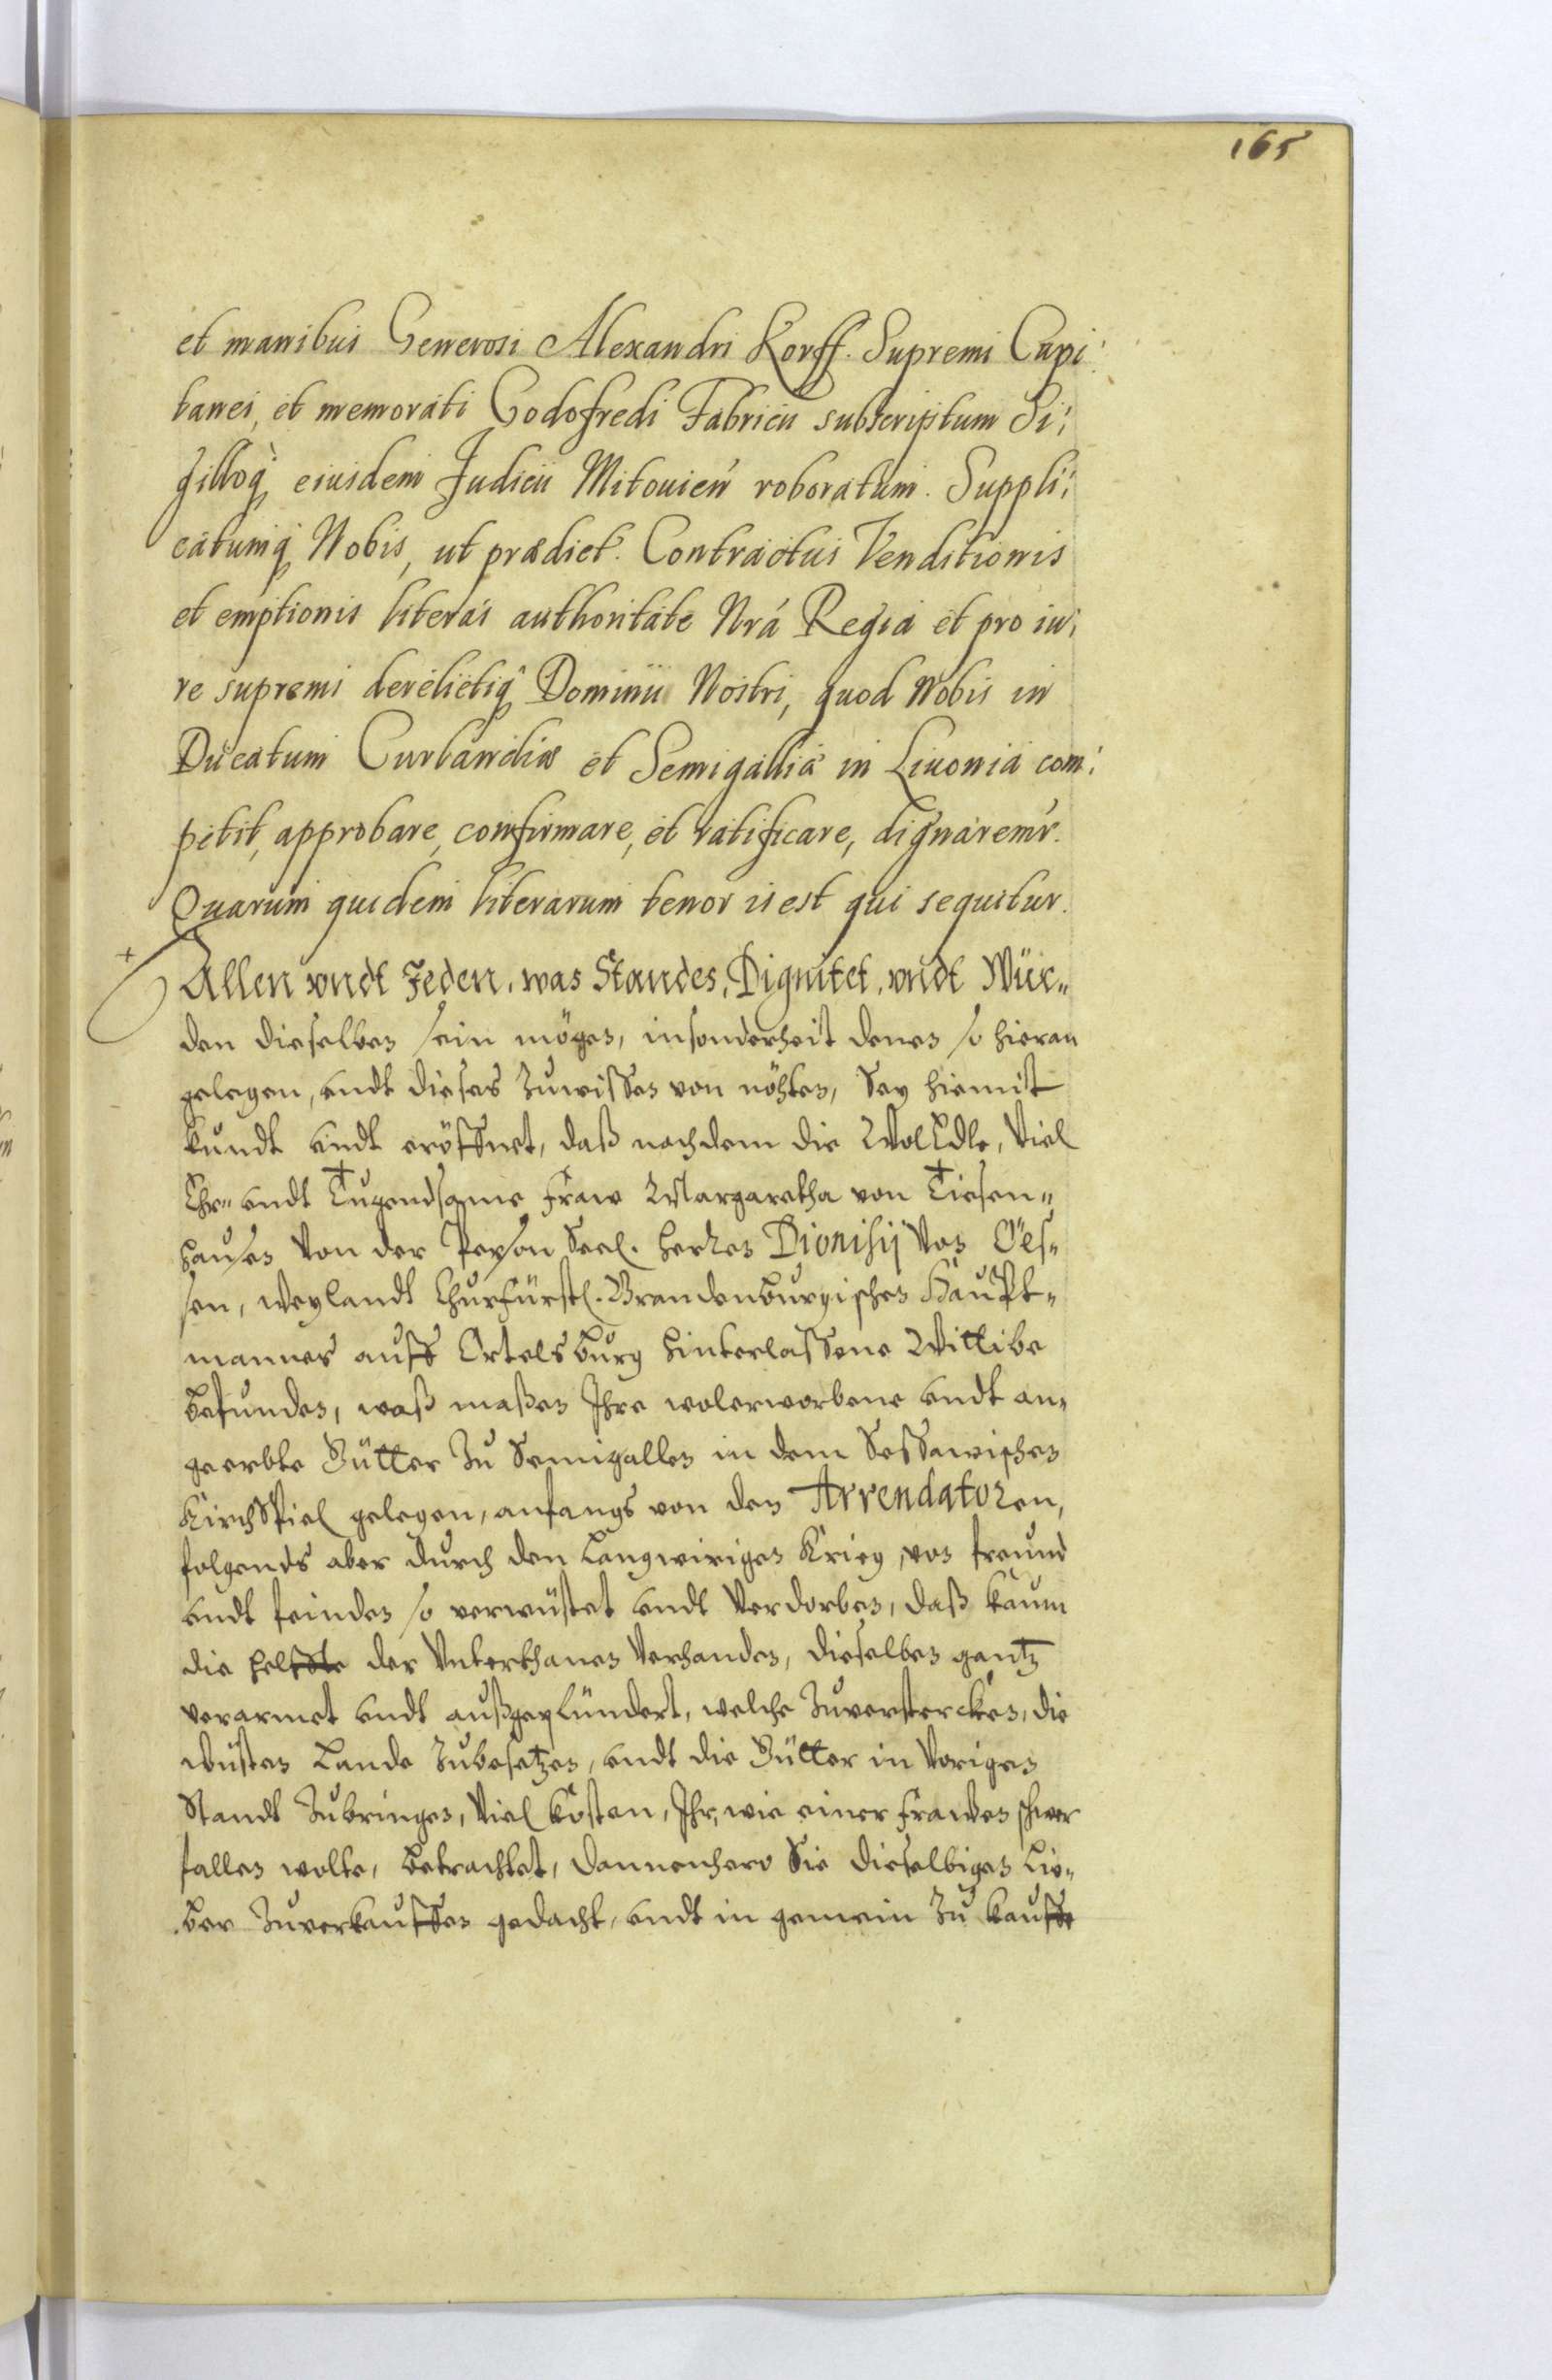 165
et manibus Generosi Alexandri Korff. Supremi Capi:
tanei, et memorati Godofredi Fabricii subscriptum Si:
gilloq₃ eiusdem Judicii Mitouien̄ roboratum. Suppli:
catumq₃ Nobis, ut prædict. Contractus Venditionis
et emptionis literas authoritate Nrá Regia et pro iu:
re supremi derelictiq₃ Dominii Nostri, quod Nobis in
Ducatum Curlandiæ et Semigalliá in Liuonia com:
petit, approbare, confirmare, et ratificare, dignaremr.
Quarum quidem literarum tenor is est qui sequitur.
Allen vndt Jeden, was Standes, Dignitet, vndt Wür„
den dieselben sein mögen, insonderheit denen so hieran
gelegen, vndt dieses zuwissen von nöhten, Sey hiemit
kundt vndt eröffnet, daß nachdem die WolEdle, Viel
Ehr„ vndt Tugendsame Fraw Margaretha von Tiesen„
hausen von der Person Seel. Herren Dionisij von Oels„
sen, weylandt Churfürstl. Brandenburgischen Haupt„
mannes auff Ortelsburg hinterlassene Wittibe
befunden, waß maßen Ihre wolerworbene vndt an„
geerbte Gütter zu Semigallen in dem Sessawischen
KirchSpiel gelegen, anfangs von den Arrendatoren,
folgends aber durch den langwirigen Krieg, von freund
vndt feinden so verwüstet vndt verdorben, daß kaum
die helffte der Vnterthanen verhanden, dieselben gantz
verarmet vndt außgeplündert, welche zuverstercken, die
wüsten Lande zubesetzen, vndt die Gütter in vorigen
Standt zubringen, viel kosten, Ihr, wie einer frawen schwer
fallen wolte, betrachtet, dannenhero Sie dieselbigen Lie„
ber zuverkauffen gedacht, vndt in gemein zu kauffe